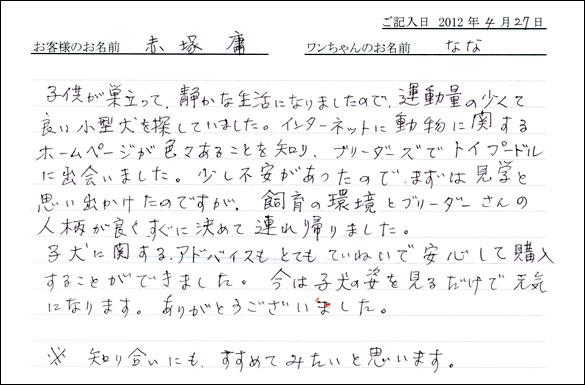 ご記入日 2012年4月27日
お客様のお名前 赤塚 庸 ワンちゃんのお名前 なな
子供が巣立って、静かな生活になりましたので、運動量の少くて
良い小型犬を探していました。インターネットに動物に関する
ホームページが色々あることを知り、ブリーダーズでトイプードル
に出会いました。少し不安があったので、まずは見学と
思い出かけたのですが、飼育の環境とブリーダーさんの
人柄が良く、すぐに決めて連れ帰りました。
子犬に関する、アドバイスもとてもていねいで安心して購入
することができました。今は子犬の姿を見るだけで元気
になります。ありがとうございました。
※ 知り合いにも、すすめてみたいと思います。